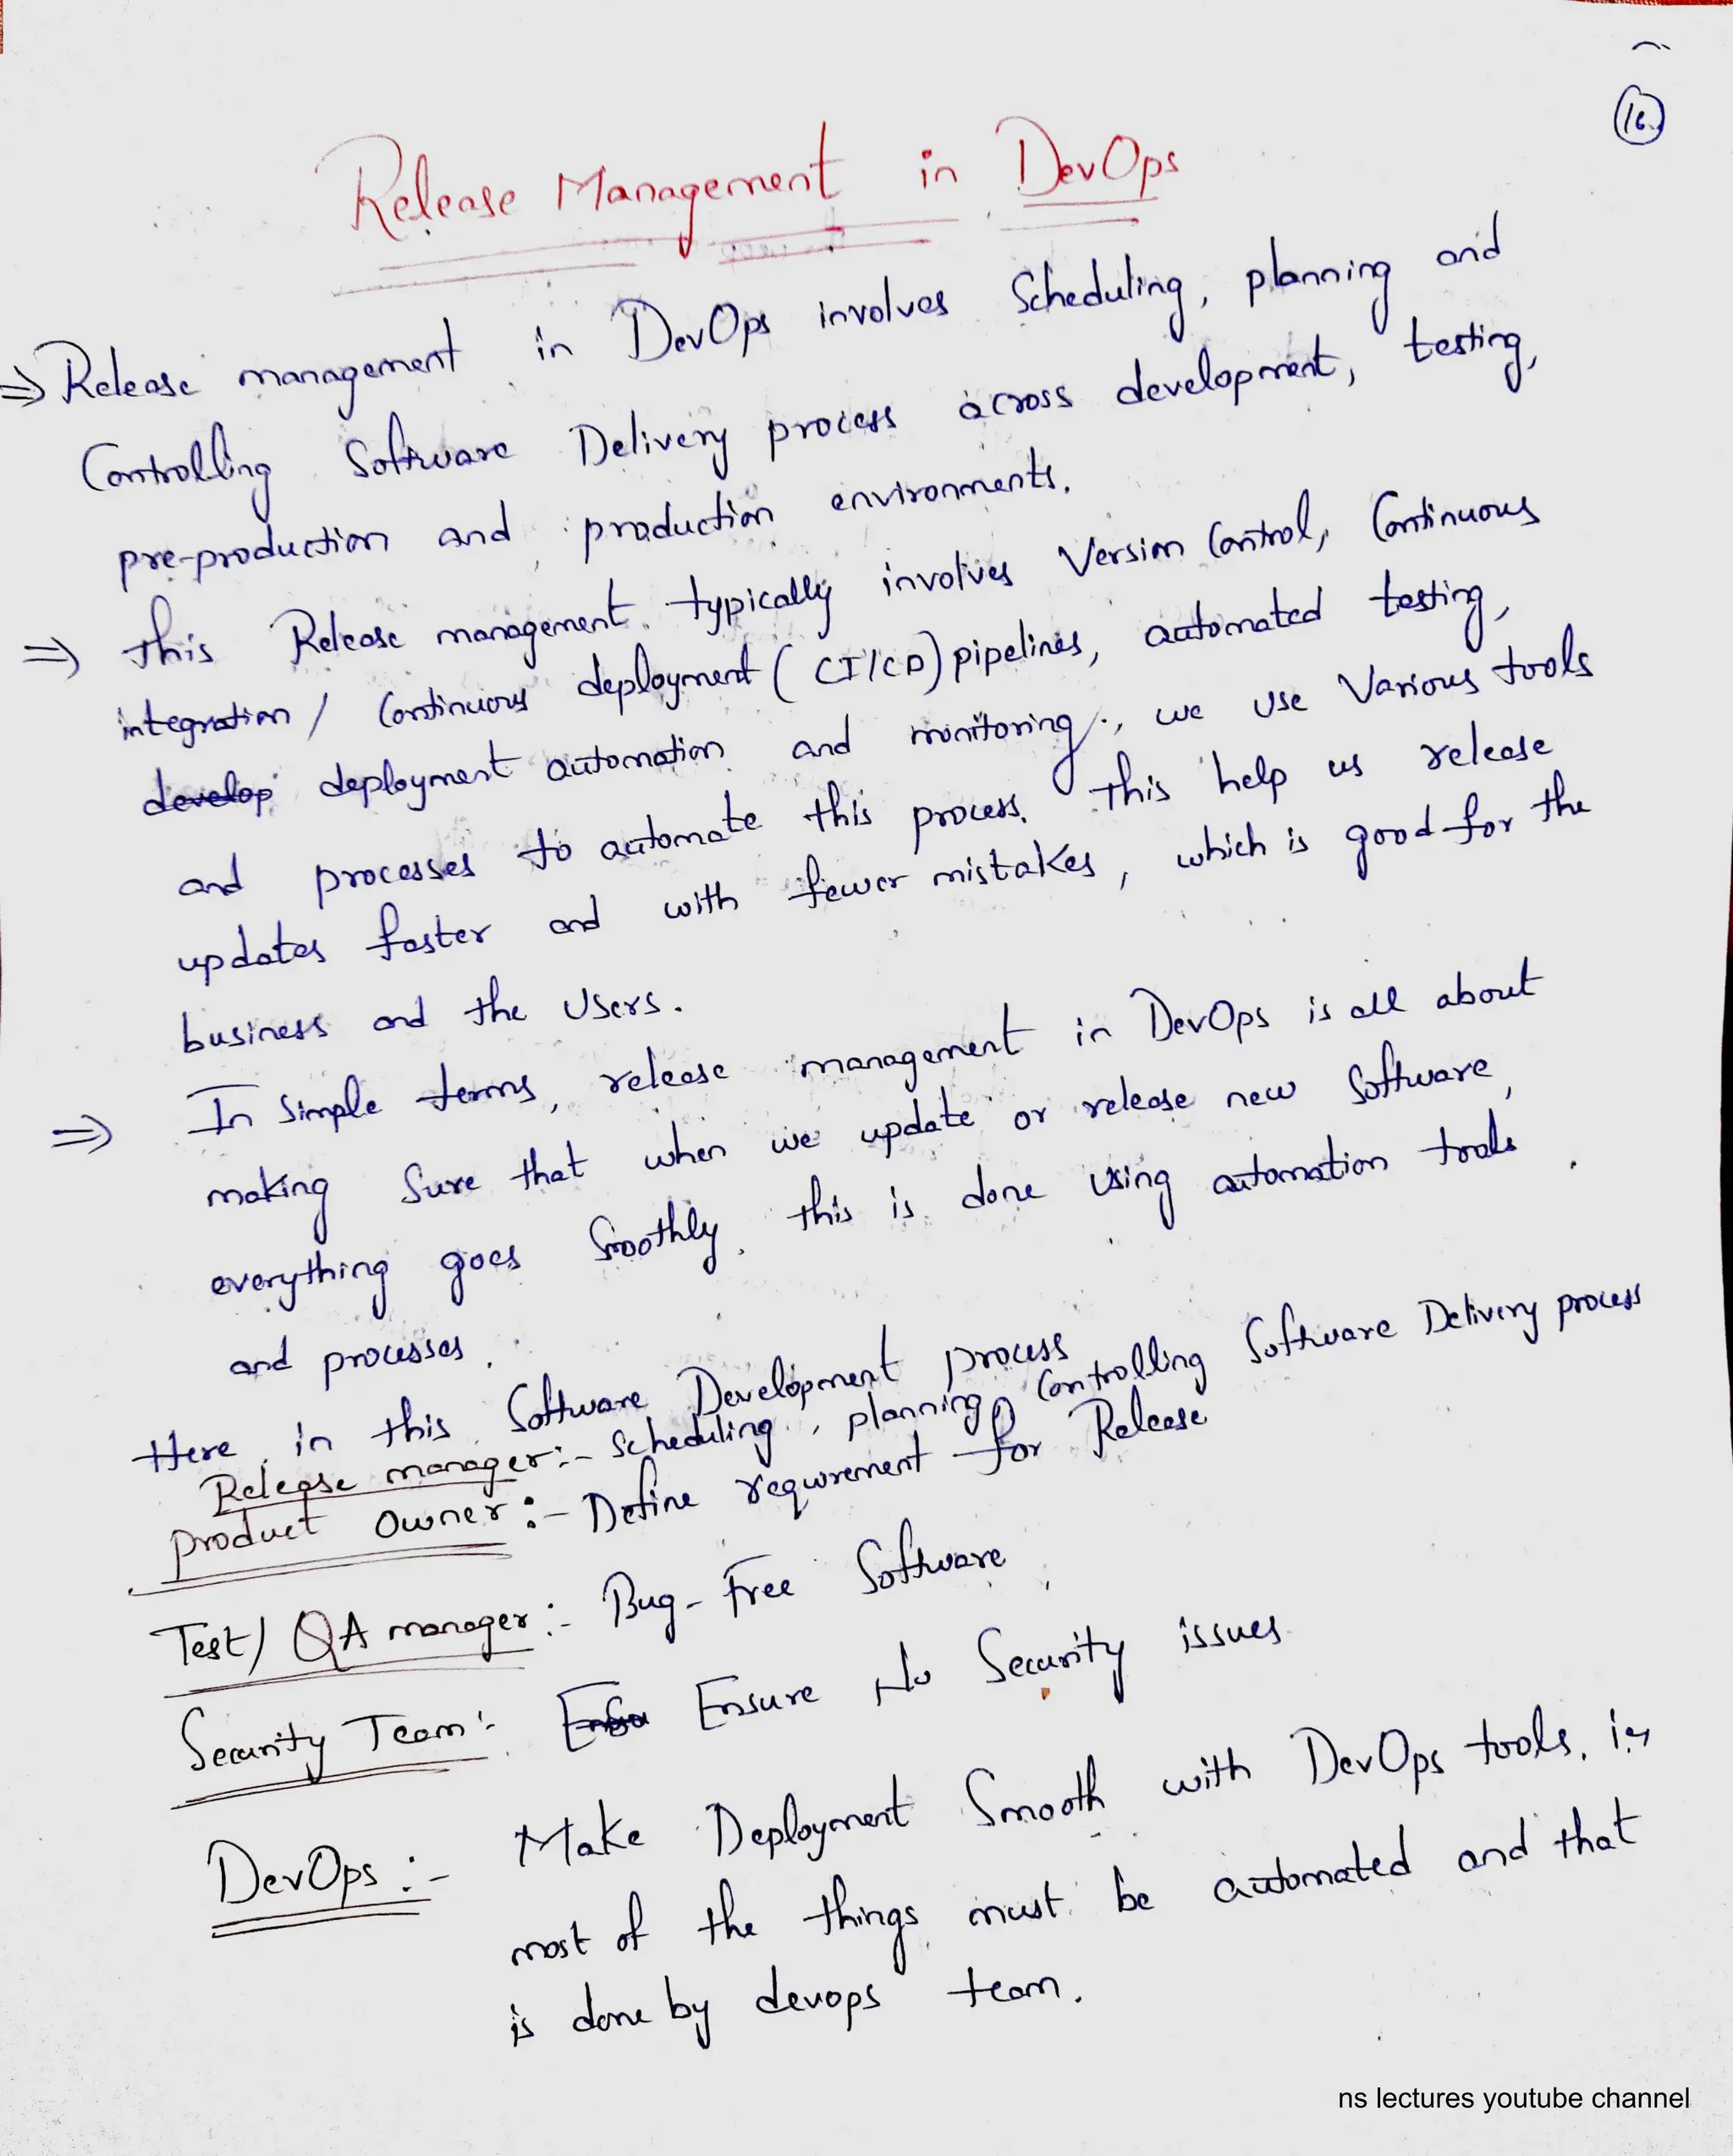 16.
Release Management in DevOps
⇒ Release management in DevOps involves Scheduling, planning and
Controlling Software Delivery process across development, testing,
pre-production and production environments.
⇒ this Release management typically involves Version Control, Continuous
integration / Continuous deployment (CI/CD) pipelines, automated testing,
develop deployment automation and monitoring., we use Various tools
and processes to automate this process. this help us release
updates faster and with fewer mistakes, which is good for the
business and the Users.
⇒ In Simple terms, release management in DevOps is all about
making Sure that when we update or release new Software,
everything goes Smoothly. this is done using automation tools
and processes.
Here, in this Software Development process
Release manager:- Scheduling, planning, Controlling Software Delivery process
product owner:- Define requirement for Release
Test/ QA manager:- Bug-Free Software
Security Team:- Ensure No Security issues
DevOps:- Make Deployment Smooth with DevOps tools.
most of the things must be automated and that
is done by devops team.
ns lectures youtube channel